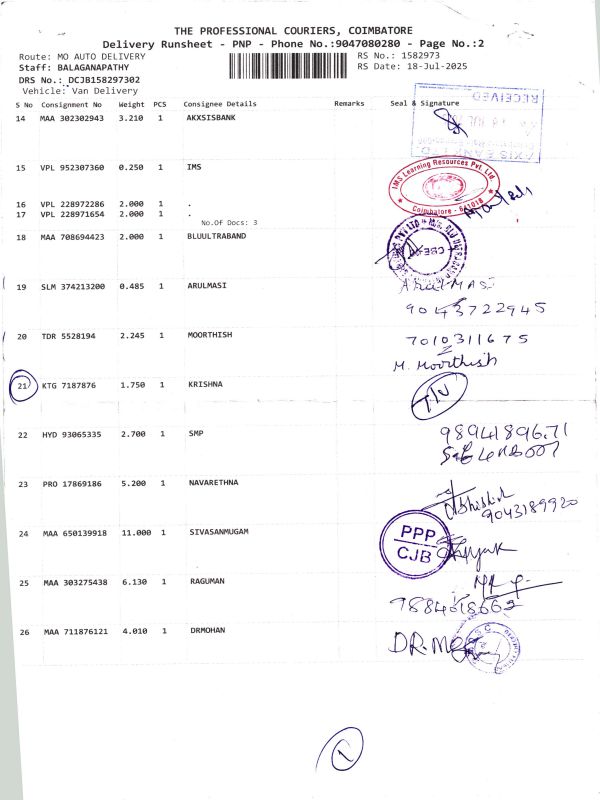 THE PROFESSIONAL COURIERS, COIMBATORE
Delivery Runsheet - PNP - Phone No.:9047080280 - Page No.:2
Route: MO AUTO DELIVERY RS No.: 1582973
Staff: BALAGANAPATHY RS Date: 18-Jul-2025
DRS No.: DCJB158297302
Vehicle: Van Delivery
S No Consignment No Weight PCS Consignee Details Remarks Seal & Signature
14 MAA 302302943 3.210 1 AKXSISBANK
RECEIVED
AXIS BANK LTD
15 VPL 952307360 0.250 1 IMS
IMS Learning Resources Pvt. Ltd.
Coimbatore - 641018
16 VPL 228972286 2.000 1 .
17 VPL 228971654 2.000 1 .
No.Of Docs: 3
18 MAA 708694423 2.000 1 BLUULTRABAND
CBE
19 SLM 374213200 0.485 1 ARULMASI
ArulMASi
9043722945
20 TDR 5528194 2.245 1 MOORTHISH
7010311675
M. Moorthish
21 KTG 7187876 1.750 1 KRISHNA
22 HYD 93065335 2.700 1 SMP
9894189671
23 PRO 17869186 5.200 1 NAVARETHNA
Abhishek
9043189920
24 MAA 650139918 11.000 1 SIVASANMUGAM
PPP
CJB
25 MAA 303275438 6.130 1 RAGUMAN
9884618662
26 MAA 711876121 4.010 1 DRMOHAN
DR.
1